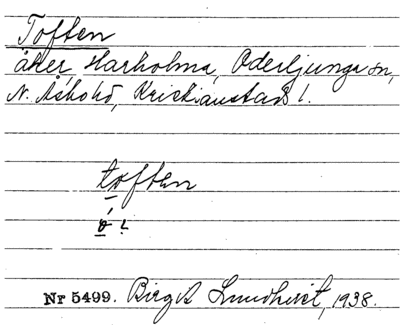 Toften
åker, Harholma, Oderljunga sn,
N. Åsbo hd, Kristianstads l.
toften
o !
Nr 5499. Birgit Lundqvist, 1938.